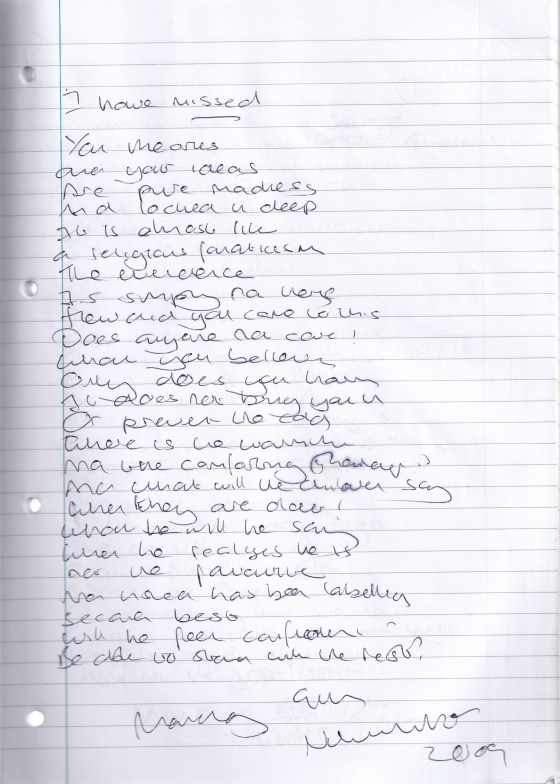 I have missed
You
and your ideas
Are pure madness
And locked in deep
It is almost like
a religious fanaticism
The
Is simply
How did you come to this
Does anyone not care!
what you believe
Only does you harm
It does not bring you in
Or prevent the cold
Where is the warmth
the comforting
what will the children say
when they are older!
what he will he say
when he realises he is
not the favourite
instead has been labelled
second best
will he feel confident
Be able to stand with the rest?
2009